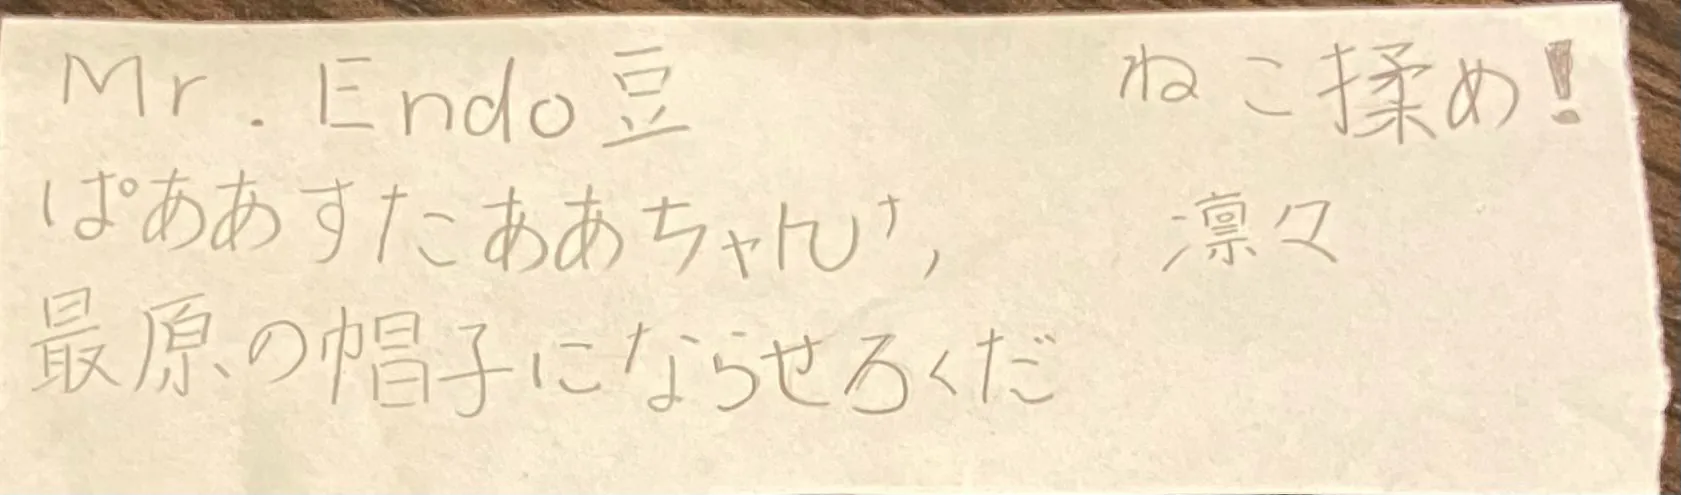 Mr. Endo豆
ねこ揉め!
ぱああすたああちゃんけ,
凛々
最原の帽子にならせろくだ